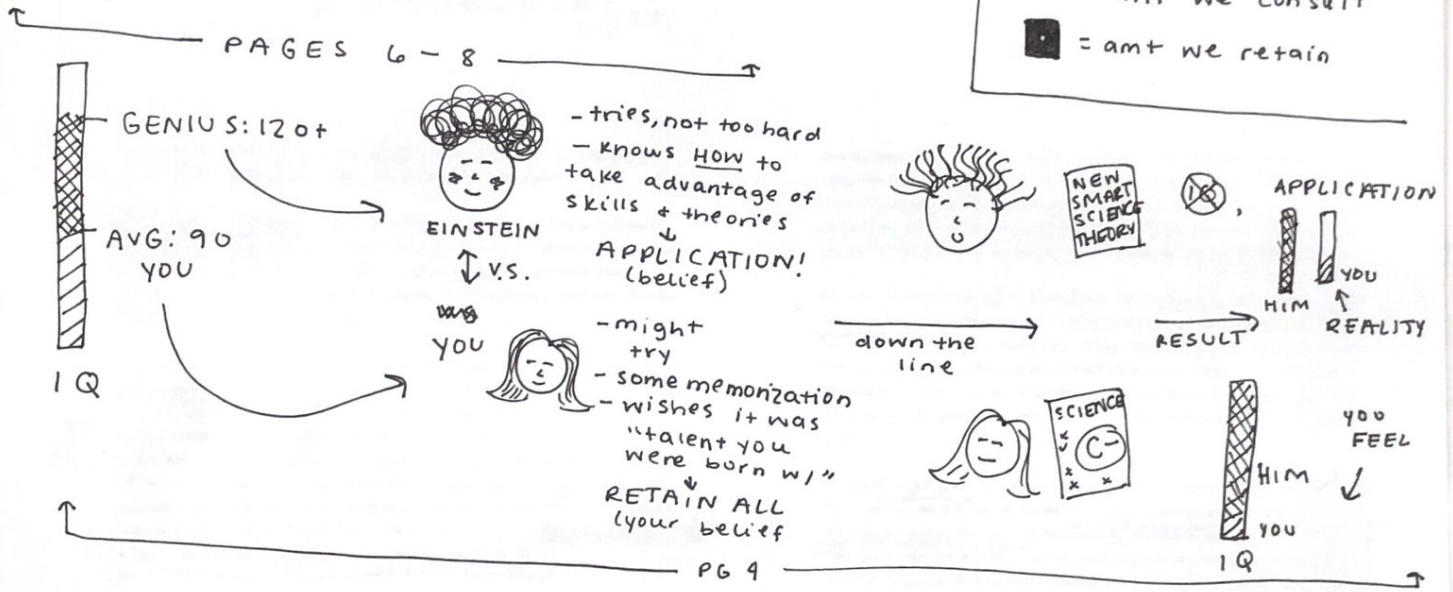 = amt we retain
PAGES 6 - 8
GENIUS: 120+
AVG: 90
YOU
IQ
EINSTEIN
V.S.
YOU
- tries, not too hard
- knows HOW to
take advantage of
skills & theories
APPLICATION!
(belief)
- might
try
- some memorization
- wishes it was
"talent you
were born w/"
RETAIN ALL
(your belief
down the
line
NEW
SMART
SCIENCE
THEORY
IQ,
APPLICATION
HIM
YOU
REALITY
RESULT
SCIENCE
C-
YOU
FEEL
HIM
YOU
IQ
PG 9